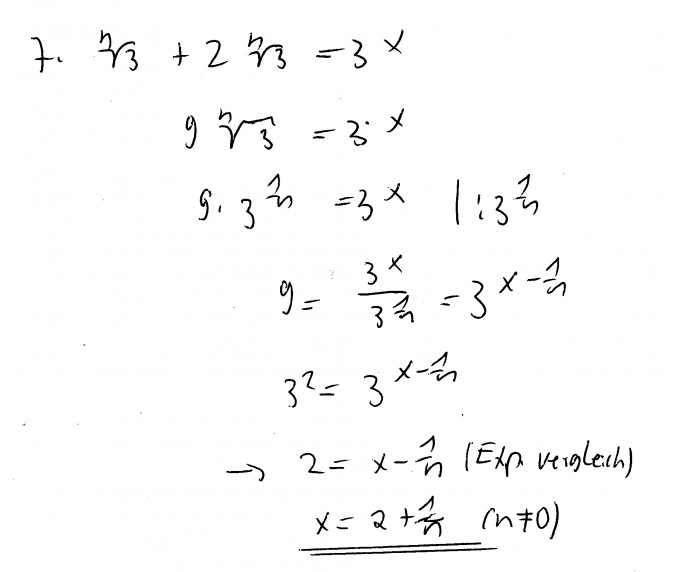 7. ⁿ√3 + 2 ⁿ√3 = 3^x
9 ⁿ√3 = 3^x
9 · 3^(1/n) = 3^x | : 3^(1/n)
9 = 3^x / 3^(1/n) = 3^(x - 1/n)
3² = 3^(x - 1/n)
→ 2 = x - 1/n (Exp. vergleich)
x = 2 + 1/n (n ≠ 0)